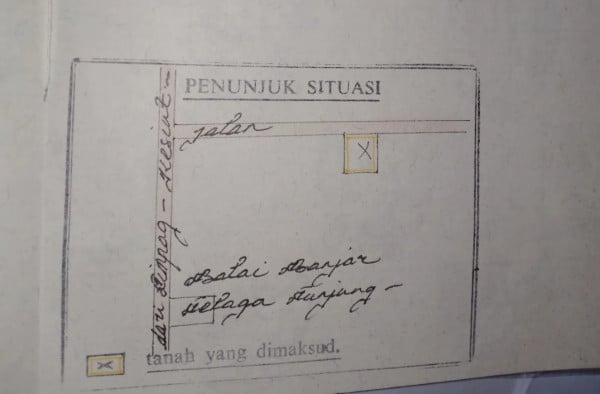 PENUNJUK SITUASI
jalan
X
dari Timpag - Kesiut -
Balai Banjar
Telaga Tunjung -
X tanah yang dimaksud.